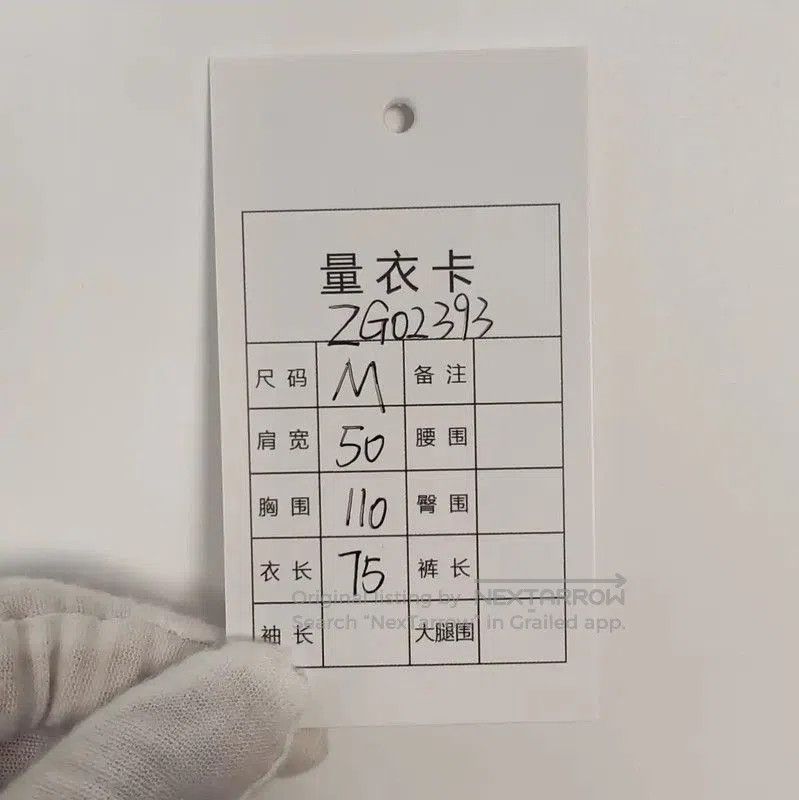 量衣卡
ZG02393
尺码 M 备注
肩宽 50 腰围
胸围 110 臀围
衣长 75 裤长
Original listing by NEXTARROW
袖长 大腿围
Search "NexTarrow" in Grailed app.